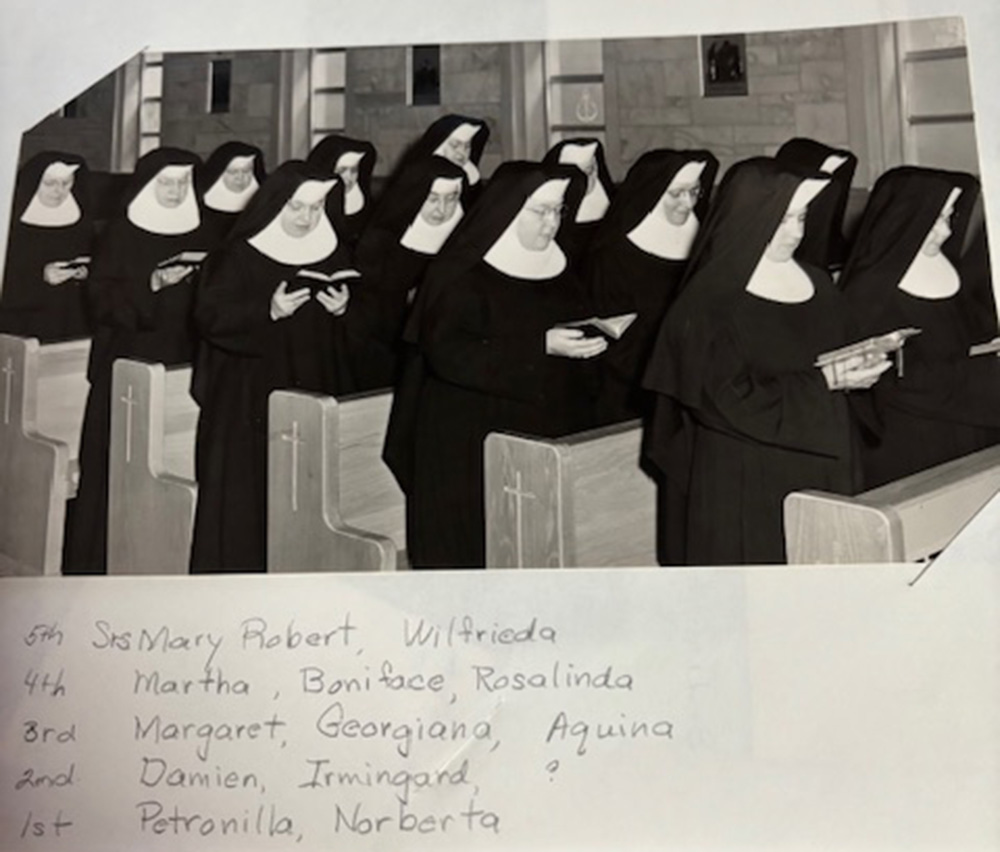 5th Srs Mary Robert, Wilfrieda
4th Martha, Boniface, Rosalinda
3rd Margaret, Georgiana, Aquina
2nd Damien, Irmingard, ?
1st Petronilla, Norberta